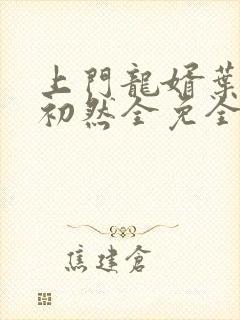 上門龍婿葉
初然全免全
焦建倉